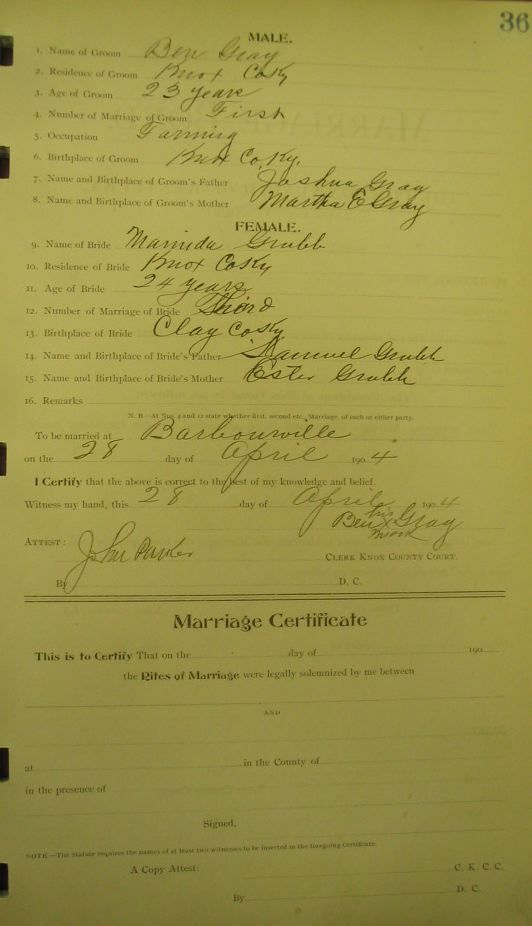 36
MALE.
1. Name of Groom Ben Gray
2. Residence of Groom Knox Co Ky
3. Age of Groom 23 years
4. Number of Marriage of Groom First
5. Occupation Farming
6. Birthplace of Groom Knox Co. Ky.
7. Name and Birthplace of Groom's Father Joshua Gray
8. Name and Birthplace of Groom's Mother Martha E Gray
FEMALE.
9. Name of Bride Grubb
10. Residence of Bride Knox Co Ky
11. Age of Bride 24 years
12. Number of Marriage of Bride Third
13. Birthplace of Bride Clay Co Ky
14. Name and Birthplace of Bride's Father Samuel Grubb
15. Name and Birthplace of Bride's Mother Ester Grubb
16. Remarks
N. B.—At Nos. 4 and 12 state whether first, second etc., Marriage, of each or either party.
To be married at Barbourville
on the 28 day of April 1904
I Certify that the above is correct to the best of my knowledge and belief.
Witness my hand, this 28 day of April 1904
his
Ben x Gray
mark
ATTEST: John Parker
CLERK KNOX COUNTY COURT.
By D. C.
Marriage Certificate
This is to Certify That on the day of 190
the Rites of Marriage were legally solemnized by me between
AND
at in the County of
in the presence of
Signed,
NOTE.—The Statute requires the names of at least two witnesses to be inserted in the foregoing Certificate.
A Copy Attest: C. K. C. C.
By D. C.